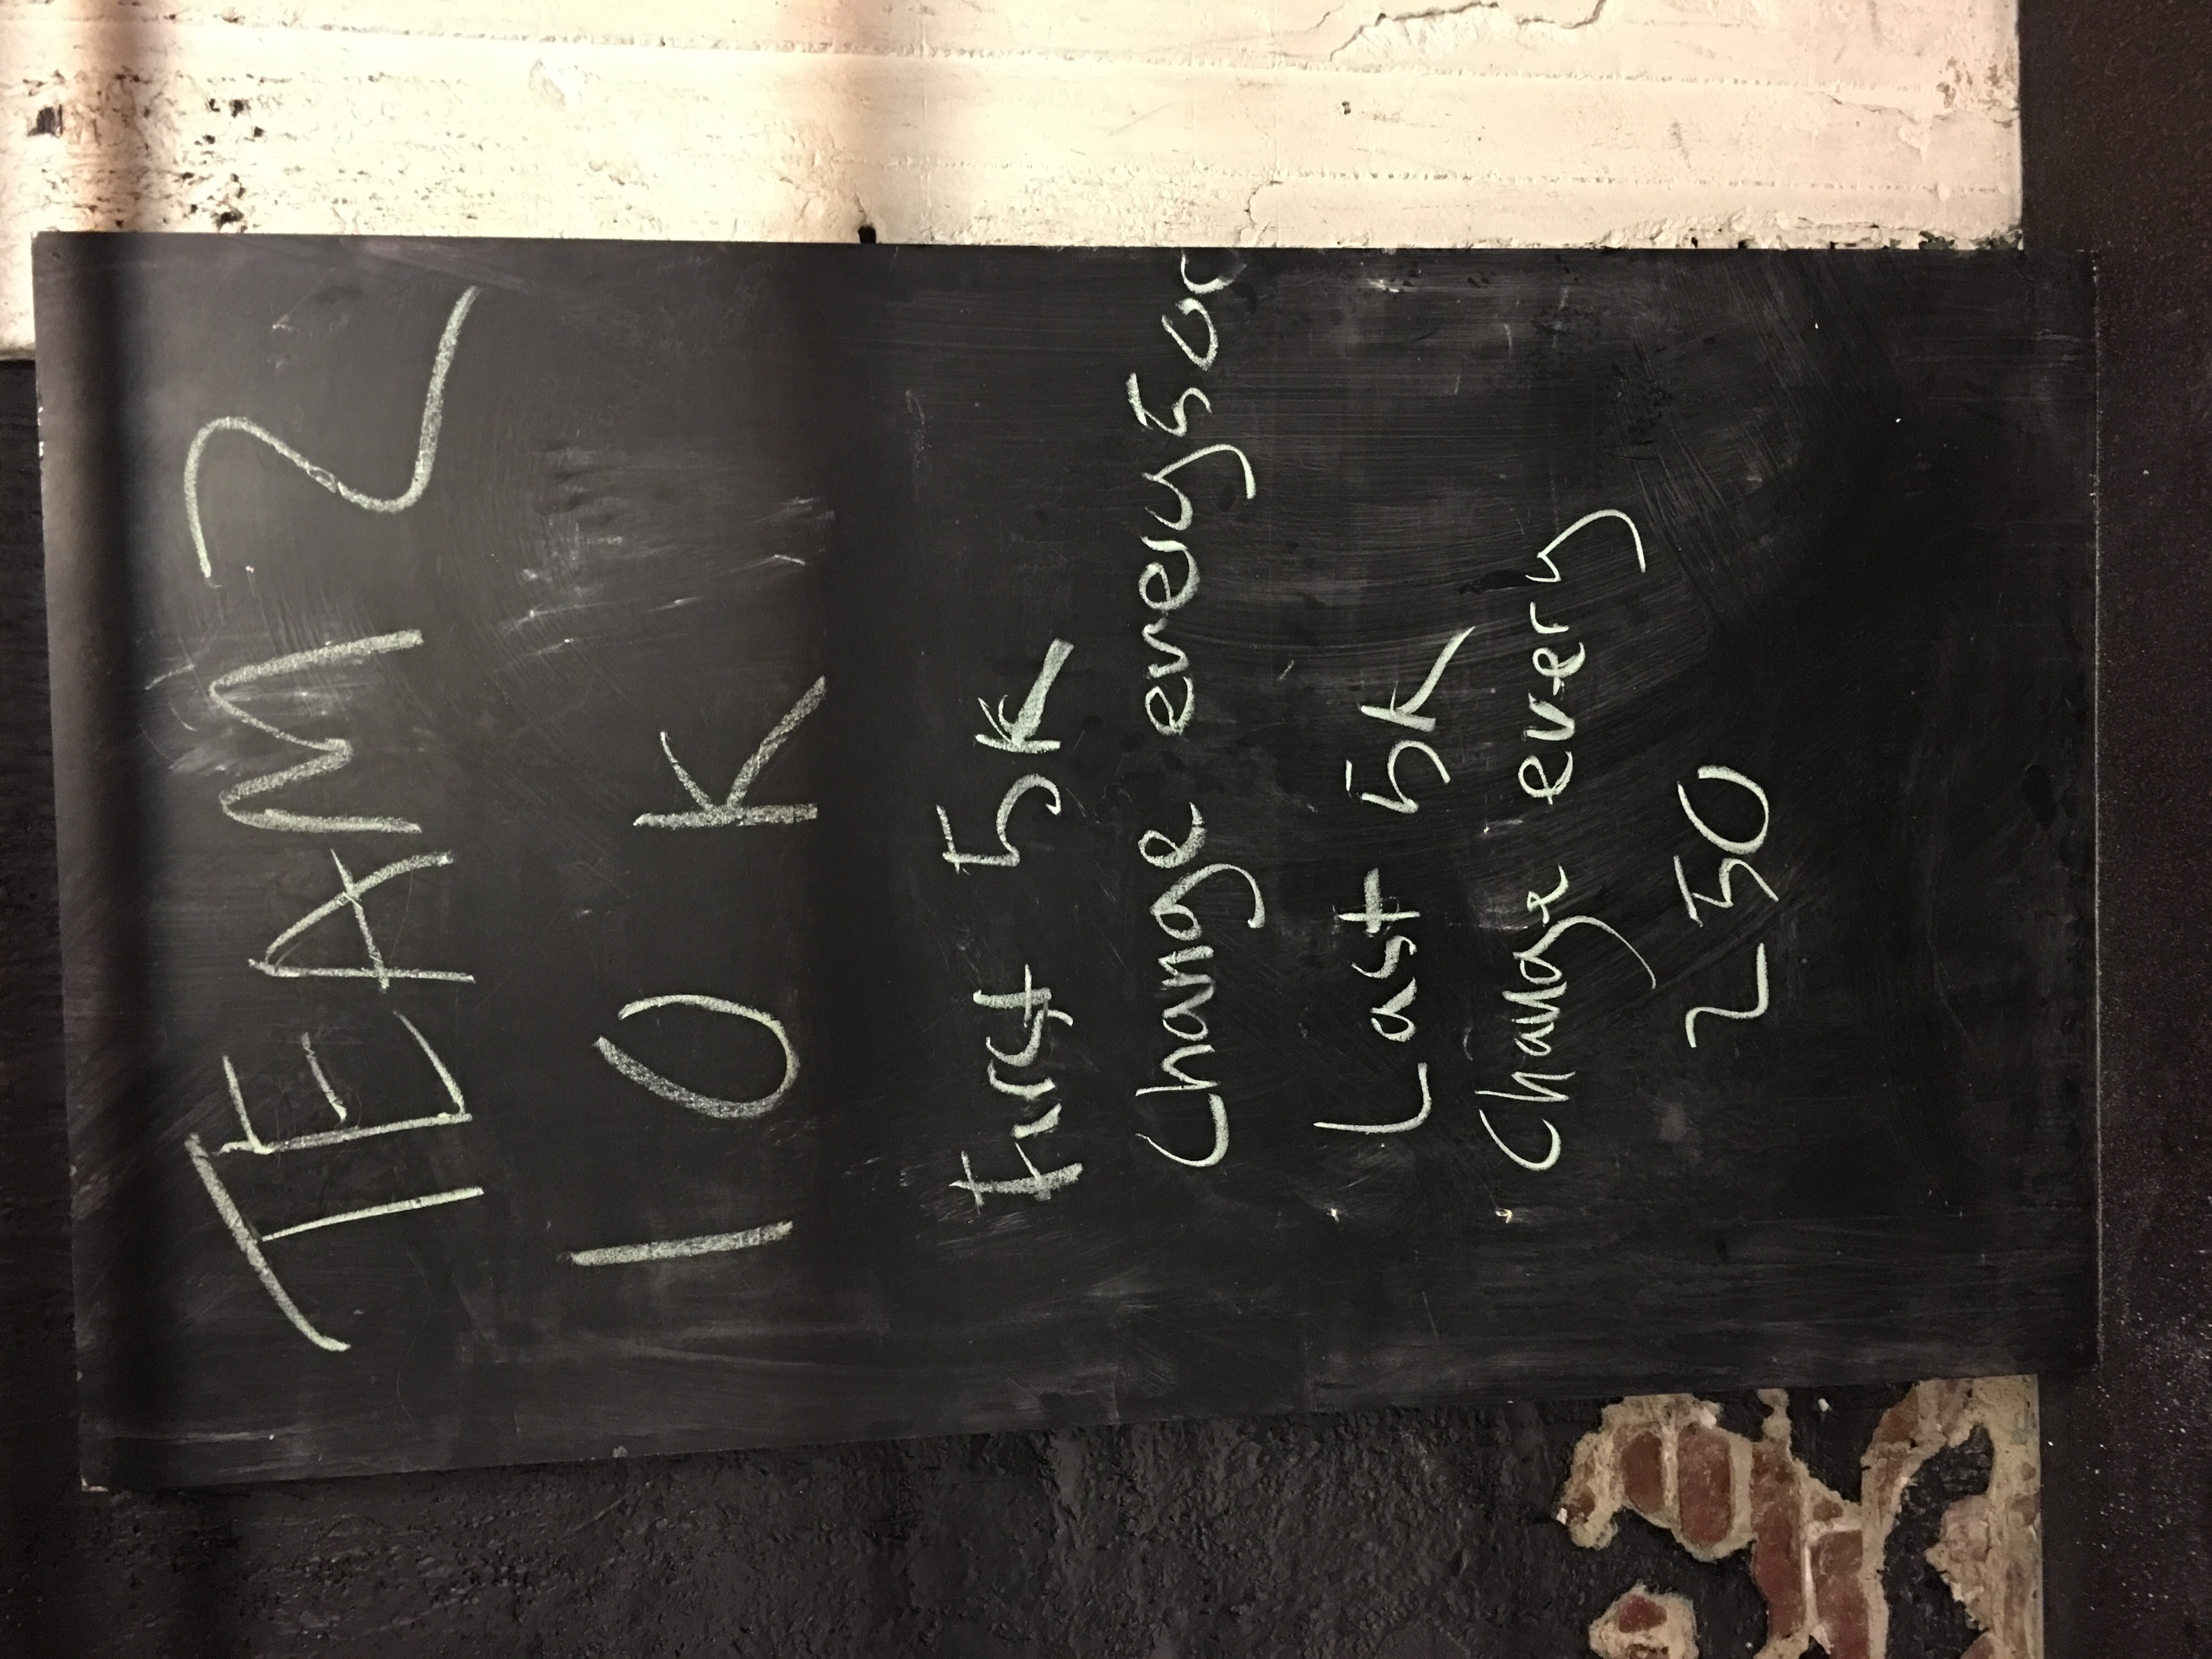 TEAM 2
10K
first 5K
Change every 500
Last 5K
Change every
250